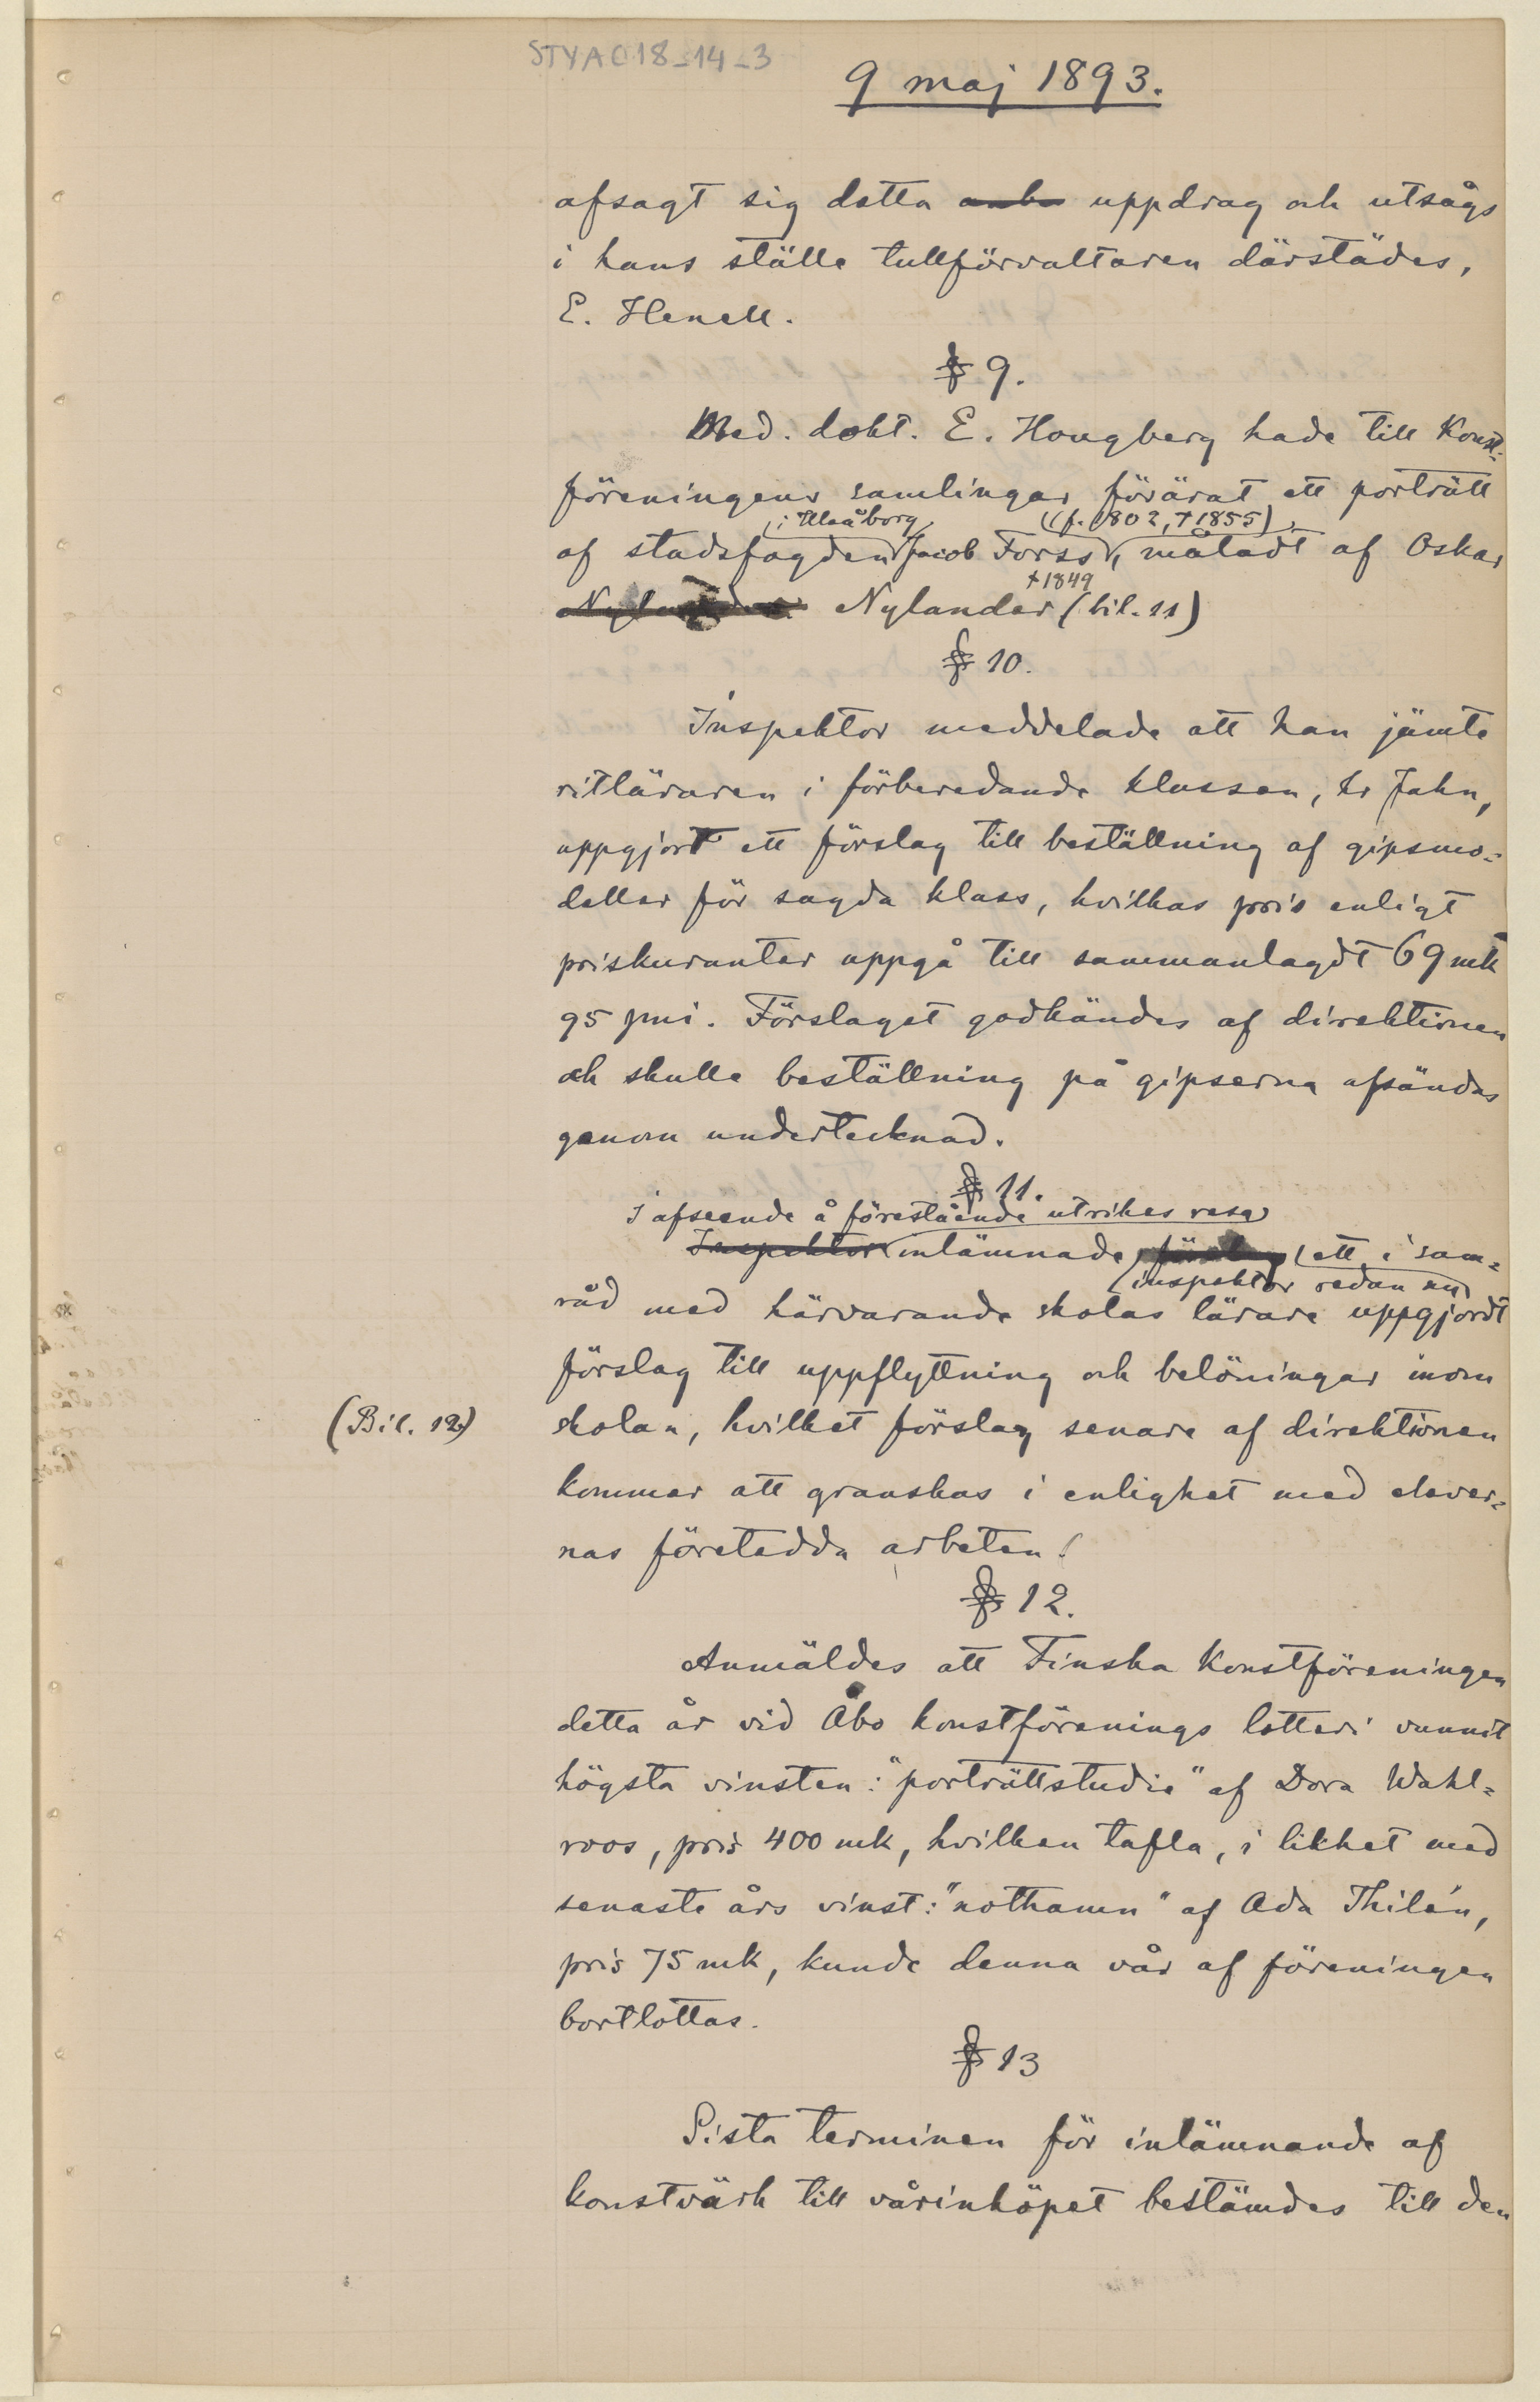 STYA C18_14_3
9 maj 1893.
afsagt sig detta uppdrag och utsågs
i hans ställe tullförvaltaren därstädes,
E. Henell.
§ 9.
Med. dokt. E. Hougberg hade till Konst-
föreningens samlingar förärat ett porträtt
i Uleåborg (f. 1802, †1855)
af stadsfogden Jacob Forss, måladt af Oskar
†1849
Nylander Nylander (bil. 11)
§ 10.
Inspektor meddelade att han jämte
ritläraren i förberedande klassen, hr Jahn,
uppgjort ett förslag till beställning af gipsmo-
deller för sagda klass, hvilkas pris enligt
priskuranter uppgå till sammanlagdt 69 mk
95 pni. Förslaget godkändes af direktionen
och skulle beställning på gipserna afsändas
genom undertecknad.
§ 11.
I afseende å förestående utrikes resa
Inspektor inlämnade förslag ett i sam-
inspektor redan nu
råd med härvarande skolas lärare uppgjordt
förslag till uppflyttning och belöningar inom
(Bil. 12)
skolan, hvilket förslag senare af direktionen
kommer att granskas i enlighet med elever-
nas företedda arbeten.
§ 12.
Anmäldes att Finska Konstföreningen
detta år vid Åbo konstförenings lotteri vunnit
högsta vinsten: "porträttstudie" af Dora Wahl-
roos, pris 400 mk, hvilken tafla, i likhet med
senaste års vinst: "nothamn" af Ada Thilén,
pris 75 mk, kunde denna vår af föreningen
bortlottas.
§ 13
Sista terminen för inlämnande af
konstvärk till vårinköpet bestämdes till den